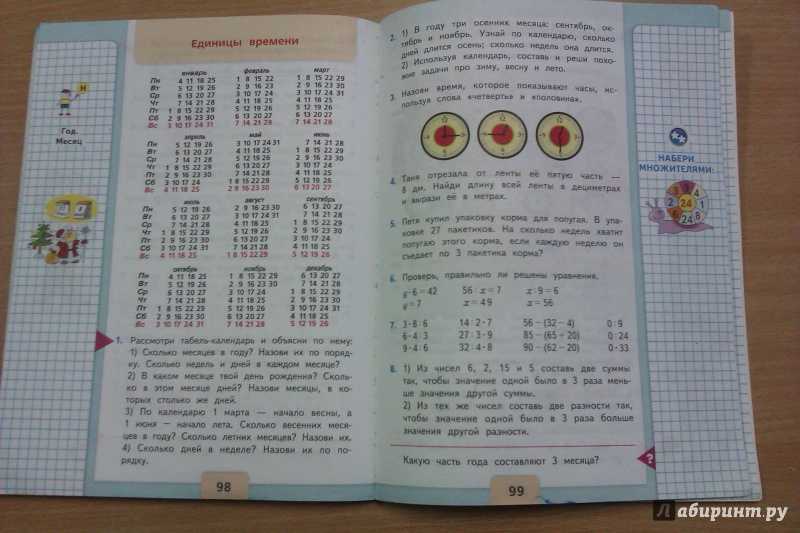 Единицы времени
январь февраль март
Пн 4 11 18 25 1 8 15 22 1 8 15 22 29
Вт 5 12 19 26 2 9 16 23 2 9 16 23 30
Ср 6 13 20 27 3 10 17 24 3 10 17 24 31
Чт 7 14 21 28 4 11 18 25 4 11 18 25
Пт 1 8 15 22 29 5 12 19 26 5 12 19 26
Сб 2 9 16 23 30 6 13 20 27 6 13 20 27
Вс 3 10 17 24 31 7 14 21 28 7 14 21 28
апрель май июнь
Пн 5 12 19 26 3 10 17 24 31 7 14 21 28
Вт 6 13 20 27 4 11 18 25 1 8 15 22 29
Ср 7 14 21 28 5 12 19 26 2 9 16 23 30
Чт 1 8 15 22 29 6 13 20 27 3 10 17 24
Пт 2 9 16 23 30 7 14 21 28 4 11 18 25
Сб 3 10 17 24 1 8 15 22 29 5 12 19 26
Вс 4 11 18 25 2 9 16 23 30 6 13 20 27
июль август сентябрь
Пн 5 12 19 26 2 9 16 23 30 6 13 20 27
Вт 6 13 20 27 3 10 17 24 31 7 14 21 28
Ср 7 14 21 28 4 11 18 25 1 8 15 22 29
Чт 1 8 15 22 29 5 12 19 26 2 9 16 23 30
Пт 2 9 16 23 30 6 13 20 27 3 10 17 24
Сб 3 10 17 24 31 7 14 21 28 4 11 18 25
Вс 4 11 18 25 1 8 15 22 29 5 12 19 26
октябрь ноябрь декабрь
Пн 4 11 18 25 1 8 15 22 29 6 13 20 27
Вт 5 12 19 26 2 9 16 23 30 7 14 21 28
Ср 6 13 20 27 3 10 17 24 1 8 15 22 29
Чт 7 14 21 28 4 11 18 25 2 9 16 23 30
Пт 1 8 15 22 29 5 12 19 26 3 10 17 24 31
Сб 2 9 16 23 30 6 13 20 27 4 11 18 25
Вс 3 10 17 24 31 7 14 21 28 5 12 19 26
Н
Год.
Месяц
1. Рассмотри табель-календарь и объясни по нему:
1) Сколько месяцев в году? Назови их по поряд-
ку. Сколько недель и дней в каждом месяце?
2) В каком месяце твой день рождения? Сколь-
ко в этом месяце дней? Назови месяцы, в ко-
торых столько же дней.
3) По календарю 1 марта — начало весны, а
1 июня — начало лета. Сколько весенних меся-
цев в году? Сколько летних месяцев? Назови их.
4) Сколько дней в неделе? Назови их по по-
рядку.
98
2. 1) В году три осенних месяца: сентябрь, ок-
тябрь и ноябрь. Узнай по календарю, сколько
дней длится осень; сколько недель она длится.
2) Используя календарь, составь и реши похо-
жие задачи про зиму, весну и лето.
3. Назови время, которое показывают часы, ис-
пользуя слова «четверть» и «половина».
4. Таня отрезала от ленты её пятую часть —
8 дм. Найди длину всей ленты в дециметрах
и вырази её в метрах.
5. Петя купил упаковку корма для попугая. В упа-
ковке 27 пакетиков. На сколько недель хватит
попугаю этого корма, если каждую неделю он
съедает по 3 пакетика корма?
6. Проверь, правильно ли решены уравнения.
y·6=42 56:x=7 x:9=6
y=7 x=49 x=56
7. 3·8:6 14:2·7 56−(32−4) 0:9
6·4:3 27:3·9 85−(65+20) 0·24
9·4:6 32:4·8 90−(62−20) 0·33
8. 1) Из чисел 6, 2, 15 и 5 составь две суммы
так, чтобы значение одной было в 3 раза мень-
ше значения другой суммы.
2) Из тех же чисел составь две разности так,
чтобы значение одной было в 3 раза больше
значения другой разности.
Какую часть года составляют 3 месяца?
?
99
НАБЕРИ
МНОЖИТЕЛЯМИ:
24
Лабиринт.ру